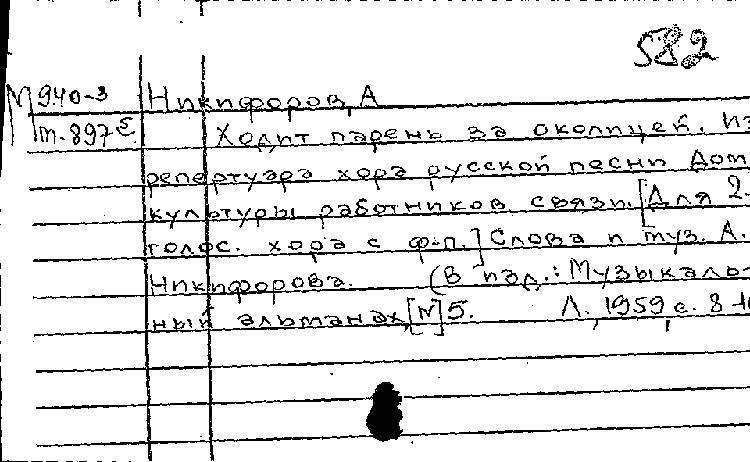 582
М 940-3 Никифоров, А
m.897 Ходит парень за околицей. Из
репертуара хора русской песни Дом
культуры работников связи. [Для 2-
голос. хора с ф-п.] Слова и муз. А.
Никифорова. (В изд.: Музыкаль-
ный альманах, [N] 5. Л., 1959, с. 8-10